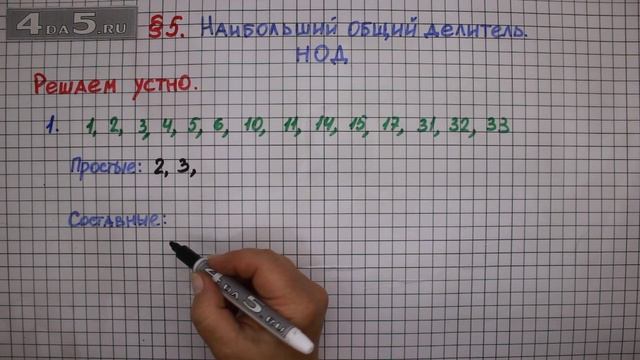 4DA5.RU
§5. Наибольший общий делитель.
НОД
Решаем устно.
1. 1, 2, 3, 4, 5, 6, 10, 11, 14, 15, 17, 31, 32, 33
Простые: 2, 3,
Составные:
4 DA 5.RU